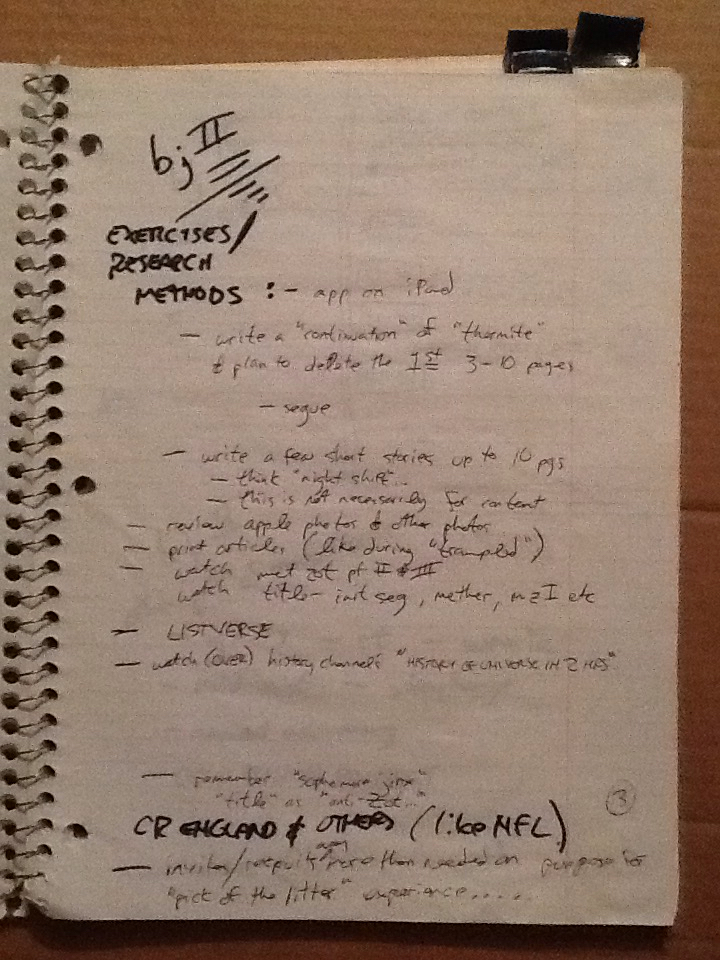 bj II
EXERCISES/
RESEARCH
METHODS : - app on iPad
- write a "continuation" of "thermite"
& plan to delete the 1st 3-10 pages
- segue
- write a few short stories up to 10 pgs
- think "night shift"...
- this is not necessarily for content
- review apple photos & other photos
- print articles (like during "trampled")
- watch met zot pt II & III
watch title- init seg, mether, mzI etc
- LISTVERSE
- watch (OVER) history channel's "HISTORY OF UNIVERSE IN 2 HRS"
- remember "sophomore jinx"
"title" as "anti-Zot..."
3
CR ENGLAND & OTHERS (like NFL)
- invites/recruits many more than needed on purpose for
"pick of the litter" experience.....